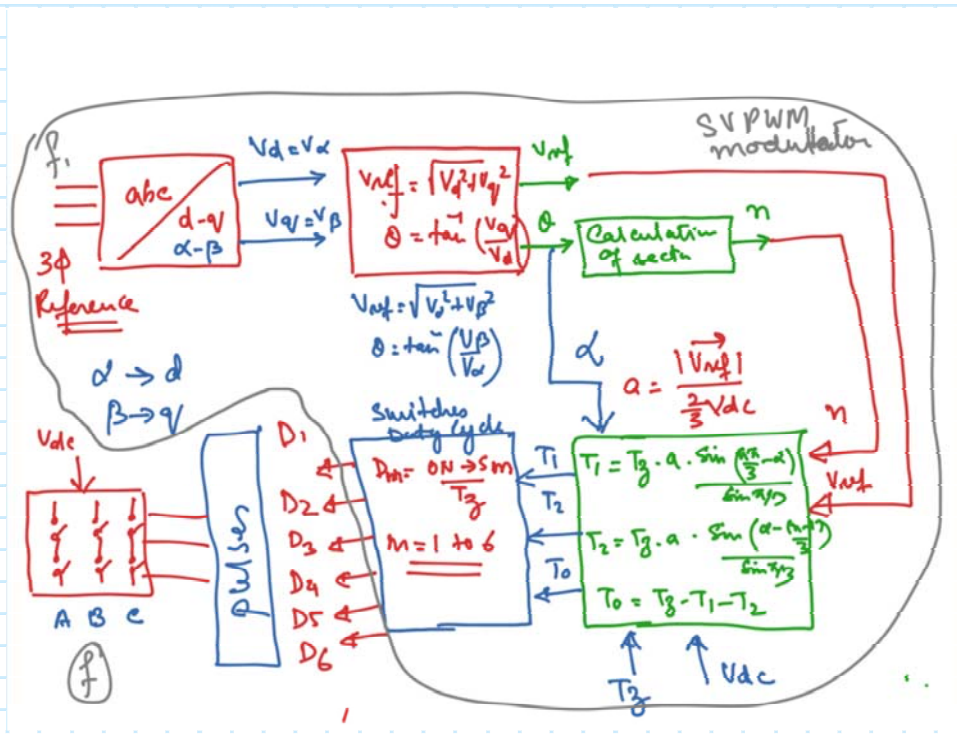 SVPWM
modulator
f₁
abc
d-q
α-β
3Φ
Reference
Vd=Vα
Vq=Vβ
Vref = √Vd²+Vq²
θ = tan⁻¹ (Vq/Vd)
Vref
θ
Calculation
of sector
n
Vref = √Vα²+Vβ²
θ = tan⁻¹ (Vβ/Vα)
α → d
β → q
α
a = |Vref| / 2/3 Vdc
n
Vref
T₁ = Tz . a . Sin (nπ/3 - α) / Sin π/3
T₂ = Tz . a . Sin (α - (n-1)π/3) / Sin π/3
T₀ = Tz - T₁ - T₂
Tz
Vdc
T₁
T₂
T₀
Switches
Duty Cycle
Dm = ON → Sm / Tz
m = 1 to 6
D₁
D2
D3
D4
D5
D6
pulses
Vdc
A B C
f